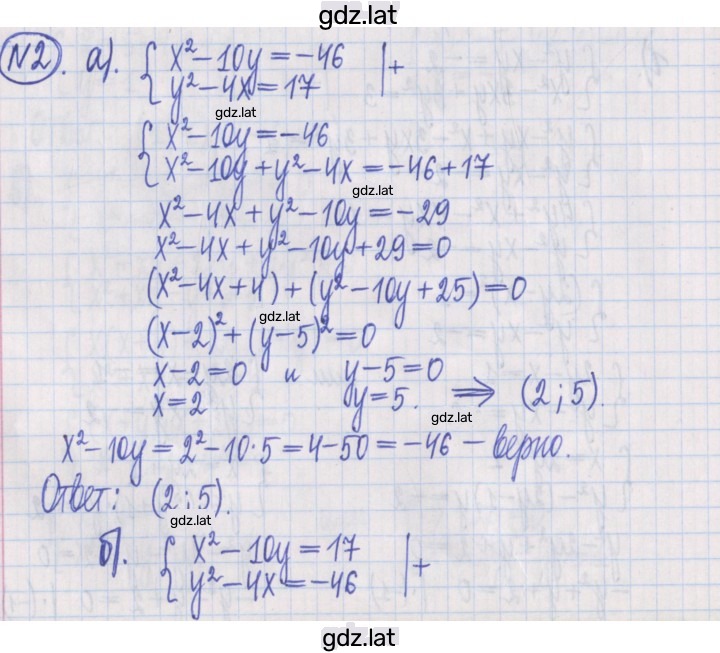 gdz.lat
N2. а). { x² – 10y = –46 | +
{ y² – 4x = 17
gdz.lat
{ x² – 10y = –46
{ x² – 10y + y² – 4x = –46 + 17
gdz.lat
x² – 4x + y² – 10y = –29
x² – 4x + y² – 10y + 29 = 0
(x² – 4x + 4) + (y² – 10y + 25) = 0
gdz.lat
(x – 2)² + (y – 5)² = 0
x – 2 = 0 и y – 5 = 0
x = 2 y = 5. ⟹ (2 ; 5).
gdz.lat
x² – 10y = 2² – 10·5 = 4 – 50 = –46 – верно.
Ответ: (2 ; 5).
gdz.lat
б). { x² – 10y = 17 | +
{ y² – 4x = –46
gdz.lat